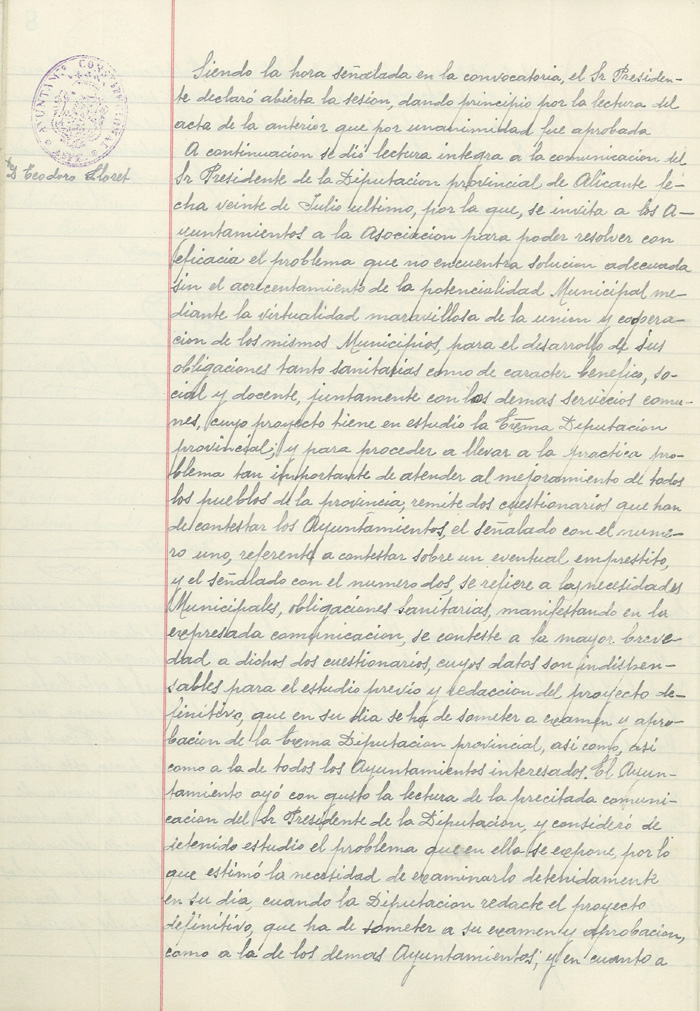 Siendo la hora señalada en la convocatoria, el Sr Presiden-
te declaró abierta la sesión, dando principio por la lectura del
acta de la anterior que por unanimidad fue aprobada
A continuacion se dió lectura integra a la comunicacion del
D Teodoro Lloret
Sr Presidente de la Diputacion provincial de Alicante fe-
cha veinte de Julio ultimo, por la que, se invita a los A-
yuntamientos a la Asociacion para poder resolver con
eficacia el problema que no encuentra solucion adecuada
sin el acrecentamiento de la potencialidad Municipal me-
diante la virtualidad maravillosa de la union y coopera-
cion de los mismos Municipios, para el desarrollo de sus
obligaciones tanto sanitarias como de caracter benefico, so-
cial y docente, juntamente con los demas servicios comu-
nes, cuyo proyecto tiene en estudio la Exma Diputacion
provincial; y para proceder a llevar a la practica pro-
blema tan importante de atender al mejoramiento de todos
los pueblos de la provincia, remite dos cuestionarios que han
de contestar los Ayuntamientos, el señalado con el nume-
ro uno, referente a contestar sobre un eventual emprestito,
y el señalado con el numero dos, se refiere a las necesidades
Municipales, obligaciones sanitarias, manifestando en la
expresada comunicacion, se conteste a la mayor breve-
dad a dichos dos cuestionarios, cuyos datos son indispen-
sables para el estudio previo y redaccion del proyecto de-
finitivo, que en su dia se ha de someter a examen y apro-
bacion de la Exma Diputacion provincial, asi como, asi
como a la de todos los Ayuntamientos interesados. El Ayun-
tamiento oyó con gusto la lectura de la precitada comuni-
cacion del Sr Presidente de la Diputacion, y consideró de
detenido estudio el problema que en ella se expone, por lo
que estimó la necesidad de examinarlo detenidamente
en su dia, cuando la Diputacion redacte el proyecto
definitivo, que ha de someter a su examen y aprobacion,
como a la de los demas Ayuntamientos; y en cuanto a